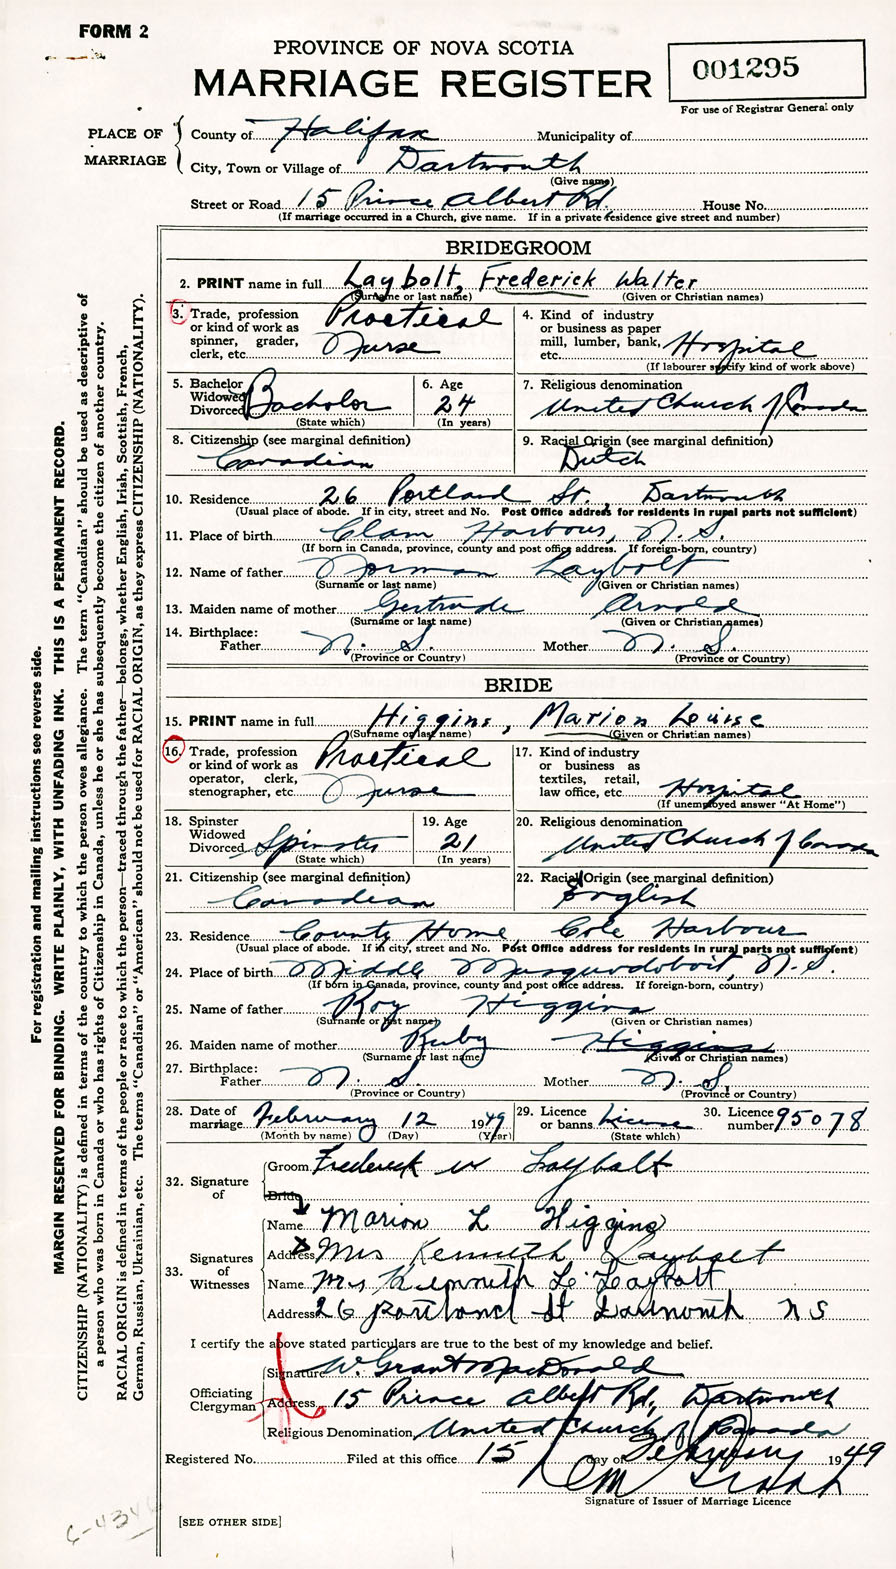 FORM 2
PROVINCE OF NOVA SCOTIA
MARRIAGE REGISTER
001295
For use of Registrar General only
PLACE OF MARRIAGE
County of Halifax Municipality of
City, Town or Village of Dartmouth
(Give name)
Street or Road 15 Prince Albert Rd. House No.
(If marriage occurred in a Church, give name. If in a private residence give street and number)
BRIDEGROOM
2. PRINT name in full Laybolt, Frederick Walter
(Surname or last name) (Given or Christian names)
3. Trade, profession or kind of work as spinner, grader, clerk, etc. Practical Nurse
4. Kind of industry or business as paper mill, lumber, bank, etc. Hospital
(If labourer specify kind of work above)
5. Bachelor Widowed Divorced Bachelor
(State which)
6. Age 24
(In years)
7. Religious denomination
United Church of Canada
8. Citizenship (see marginal definition)
Canadian
9. Racial Origin (see marginal definition)
Dutch
10. Residence 26 Portland St., Dartmouth
(Usual place of abode. If in city, street and No. Post Office address for residents in rural parts not sufficient)
11. Place of birth Clam Harbour, N.S.
(If born in Canada, province, county and post office address. If foreign-born, country)
12. Name of father Norman Laybolt
(Surname or last name) (Given or Christian names)
13. Maiden name of mother Gertrude Arnold
(Surname or last name) (Given or Christian names)
14. Birthplace:
Father N. S. Mother N. S.
(Province or Country) (Province or Country)
BRIDE
15. PRINT name in full Higgins, Marion Louise
(Surname or last name) (Given or Christian names)
16. Trade, profession or kind of work as operator, clerk, stenographer, etc. Practical Nurse
17. Kind of industry or business as textiles, retail, law office, etc. Hospital
(If unemployed answer "At Home")
18. Spinster Widowed Divorced Spinster
(State which)
19. Age 21
(In years)
20. Religious denomination
United Church of Canada
21. Citizenship (see marginal definition)
Canadian
22. Racial Origin (see marginal definition)
English
23. Residence County Home Cole Harbour
(Usual place of abode. If in city, street and No. Post Office address for residents in rural parts not sufficient)
24. Place of birth Middle Musquodoboit, N.S.
(If born in Canada, province, county and post office address. If foreign-born, country)
25. Name of father Roy Higgins
(Surname or last name) (Given or Christian names)
26. Maiden name of mother Ruby Higgins
(Surname or last name) (Given or Christian names)
27. Birthplace:
Father N. S. Mother N. S.
(Province or Country) (Province or Country)
28. Date of marriage February 12 1949
(Month by name) (Day) (Year)
29. Licence or banns License
(State which)
30. Licence number 95078
32. Signature of
Groom Frederick W Laybolt
Bride
Name Marion L Higgins
33. Signatures of Witnesses
Address Mrs Kenneth Laybolt
Name Mrs Kenneth L. Laybolt
Address 26 Portland St Dartmouth N S
I certify the above stated particulars are true to the best of my knowledge and belief.
Officiating Clergyman
Signature W. Grant MacDonald
Address 15 Prince Albert Rd, Dartmouth
Religious Denomination United Church of Canada
Registered No. Filed at this office 15 day of February 1949
Signature of Issuer of Marriage Licence
[SEE OTHER SIDE]
For registration and mailing instructions see reverse side.
MARGIN RESERVED FOR BINDING. WRITE PLAINLY, WITH UNFADING INK. THIS IS A PERMANENT RECORD.
CITIZENSHIP (NATIONALITY) is defined in terms of the country to which the person owes allegiance. The term "Canadian" should be used as descriptive of
a person who was born in Canada or who has rights of Citizenship in Canada, unless he or she has subsequently become the citizen of another country.
RACIAL ORIGIN is defined in terms of the people or race to which the person—traced through the father—belongs, whether English, Irish, Scottish, French,
German, Russian, Ukrainian, etc. The terms "Canadian" or "American" should not be used for RACIAL ORIGIN, as they express CITIZENSHIP (NATIONALITY).